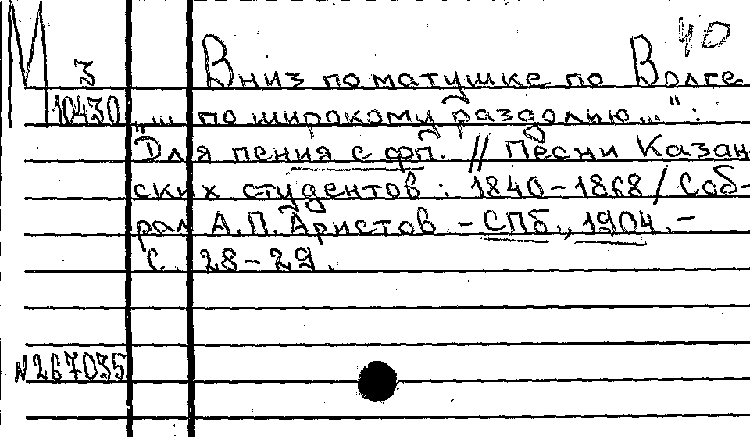 40
М 3 Вниз по матушке по Волге
10430 "... по широкому раздолью...":
Для пения с фп. // Песни Казан-
ских студентов: 1840-1868 / Соб-
рал А.П. Аристов - СПб., 1904. -
С. 28-29.
N267035